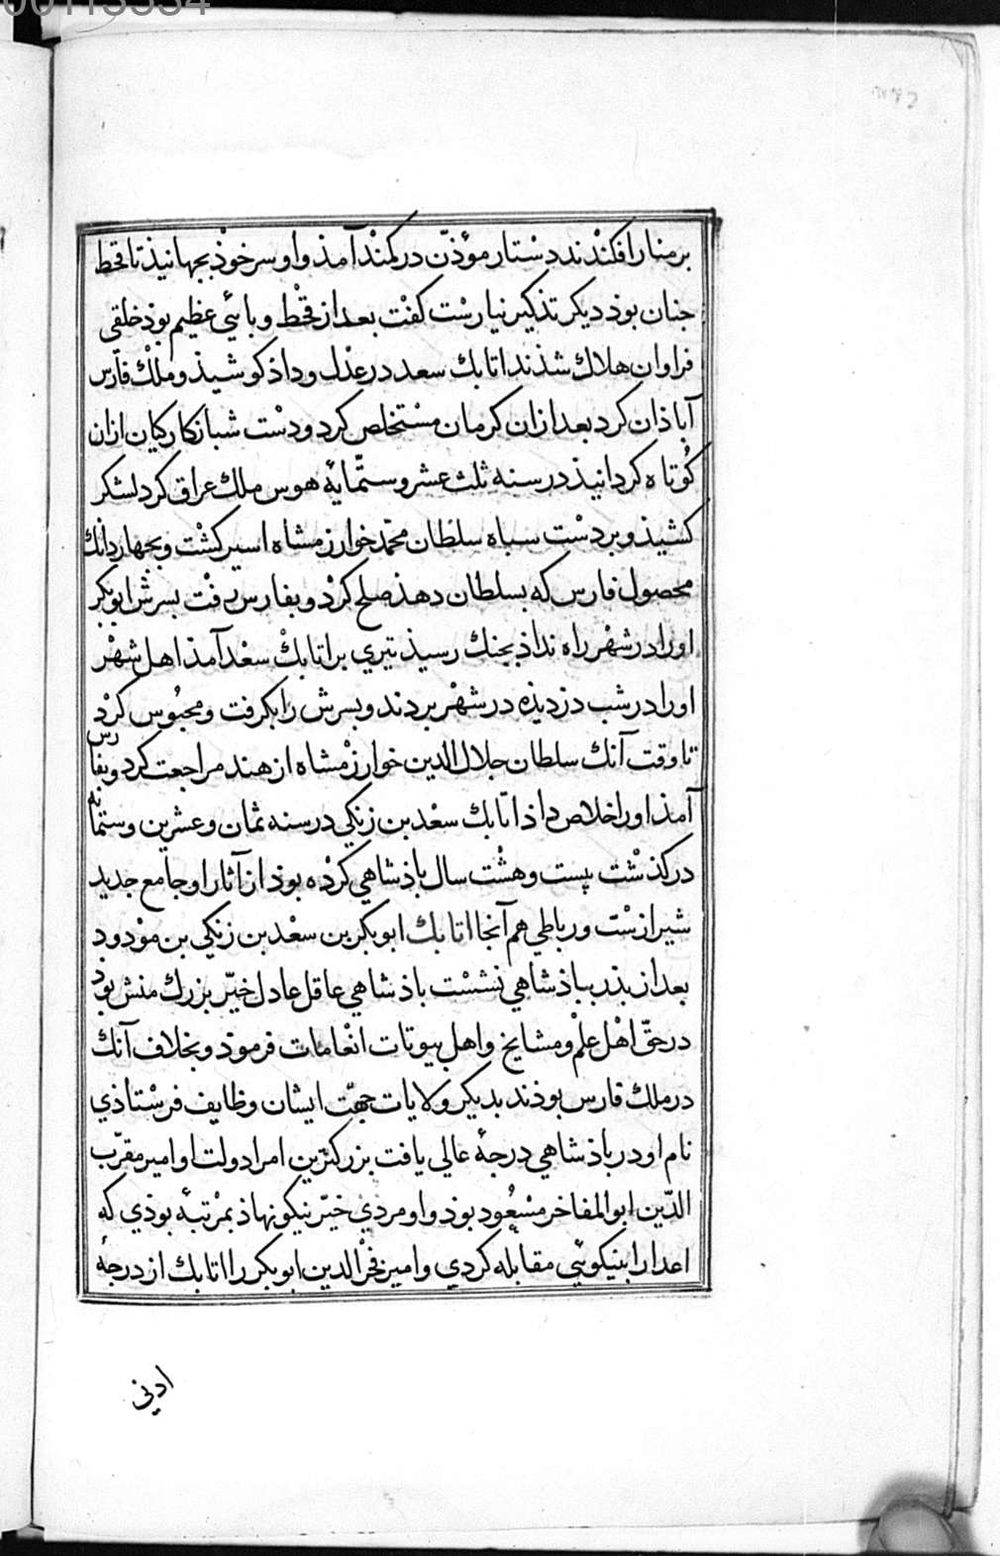 00113334
بر منار افکندند دستار مؤذن در کمند آمذ و او سر خوذ بجهانیذ تا قحط
جنان بوذ دیکر تذکیر نیارست کفت بعد از قحط وبائي عظیم بوذ خلقي
فراوان هلاك شذند اتابك سعد در عدل و داذ کوشیذ و ملك فارس
آباذان کرد بعد ازان کرمان مستخلص کرد و دست شبانکارکیان ازان
کوتاه کردانیذ در سنه ثلث عشر و ستمایه هوس ملك عراق کرد لشکر
کشیذ و بر دست سباه سلطان محمد خوارزمشاه اسیر کشت و بجهار دانك
محصول فارس که بسلطان دهذ صلح کرد و بفارس رفت بسرش ابوبکر
اورا در شهر راه نداذ بجنك رسیذ تیري بر اتابك سعد آمذ اهل شهر
اورا در شب دزدیذه در شهر بردند و بسرش را بکرفت و محبوس کرد
تا وقت آنك سلطان جلال الدین خوارزمشاه از هند مراجعت کرد و بفارس
آمذ اورا خلاص داذ اتابك سعد بن زنکي در سنه ثمان و عشرین و ستمائه
درکذشت بیست و هشت سال باذشاهي کرده بوذ از آثار او جامع جدید
شیرازست و رباطي هم آنجا اتابك ابوبکر بن سعد بن زنکي بن مودود
بعد از بذر بباذشاهي نشست باذشاهي عاقل عادل خیر بزرك منش بوذ
در حق اهل علم و مشایخ و اهل بیوتات انعامات فرموذ و بخلاف آنك
در ملك فارس بوذند بدیکر ولایات جهت ایشان وظایف فرستاذي
نام او در باذشاهي درجهٔ عالي یافت بزرکترین امرا دولت او امیر مقرب
الدین ابوالمفاخر مسعود بوذ و او مردي خیر نیکو نهاذ بمرتبهٔ بوذي که
اعدا را بنیکویي مقابله کردي و امیر فخرالدین ابوبکر را اتابك از درجهٔ
ادني